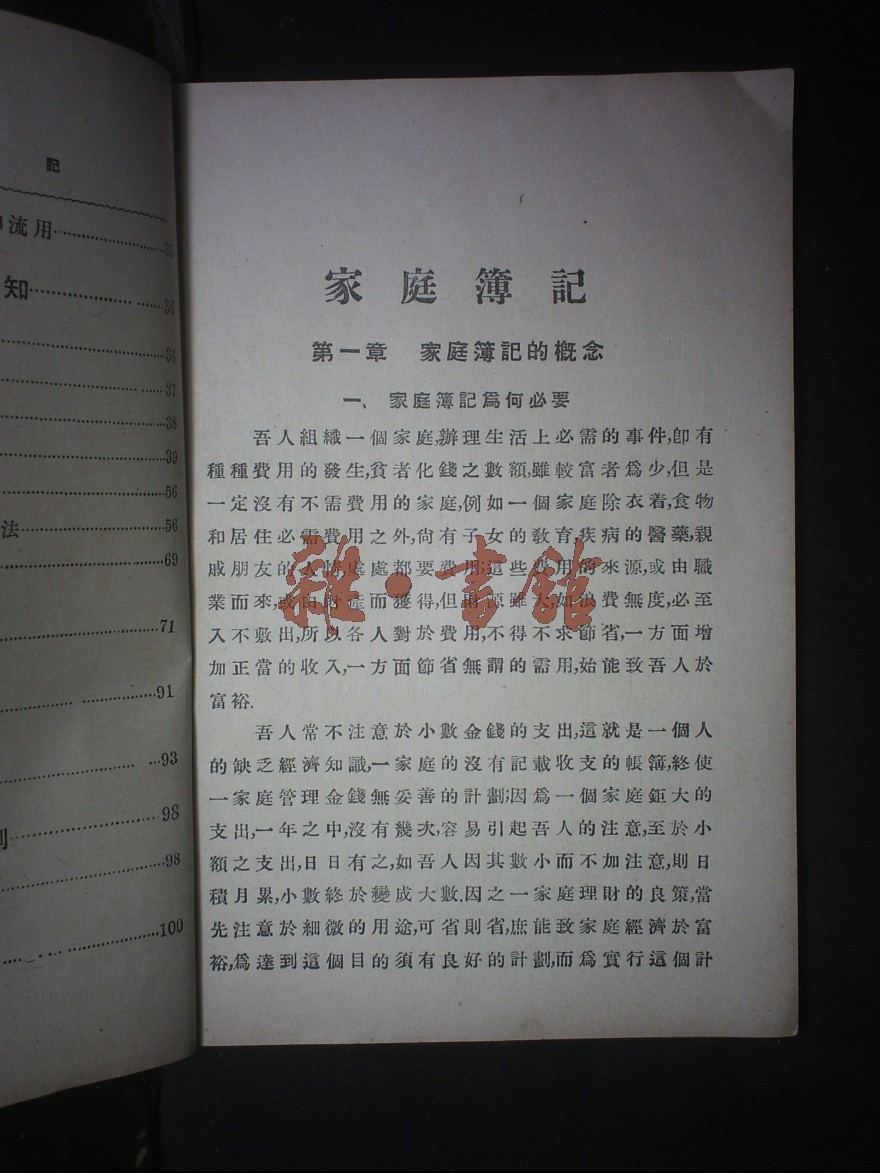 記
流用……35
知……36
36
37
38
39
56
法……56
69
71
91
93
98
98
100
家庭簿記
第一章 家庭簿記的概念
一、家庭簿記爲何必要
吾人組織一個家庭,辦理生活上必需的事件,卽有
種種費用的發生,貧者化錢之數額,雖較富者爲少,但是
一定沒有不需費用的家庭,例如一個家庭除衣着,食物
和居住必需費用之外,尙有子女的敎育,疾病的醫藥,親
戚朋友的人情處處都要費用;這些費用的來源,或由職
業而來,或由財產而獲得,但財源雖大,如浪費無度,必至
入不敷出,所以各人對於費用,不得不求節省,一方面增
加正當的收入,一方面節省無謂的需用,始能致吾人於
富裕.
吾人常不注意於小數金錢的支出,這就是一個人
的缺乏經濟知識,一家庭的沒有記載收支的帳簿,終使
一家庭管理金錢無妥善的計劃;因爲一個家庭鉅大的
支出,一年之中,沒有幾次,容易引起吾人的注意,至於小
額之支出,日日有之,如吾人因其數小而不加注意,則日
積月累,小數終於變成大數.因之一家庭理財的良策,當
先注意於細微的用途,可省則省,庶能致家庭經濟於富
裕,爲達到這個目的須有良好的計劃,而爲實行這個計
雜·書館